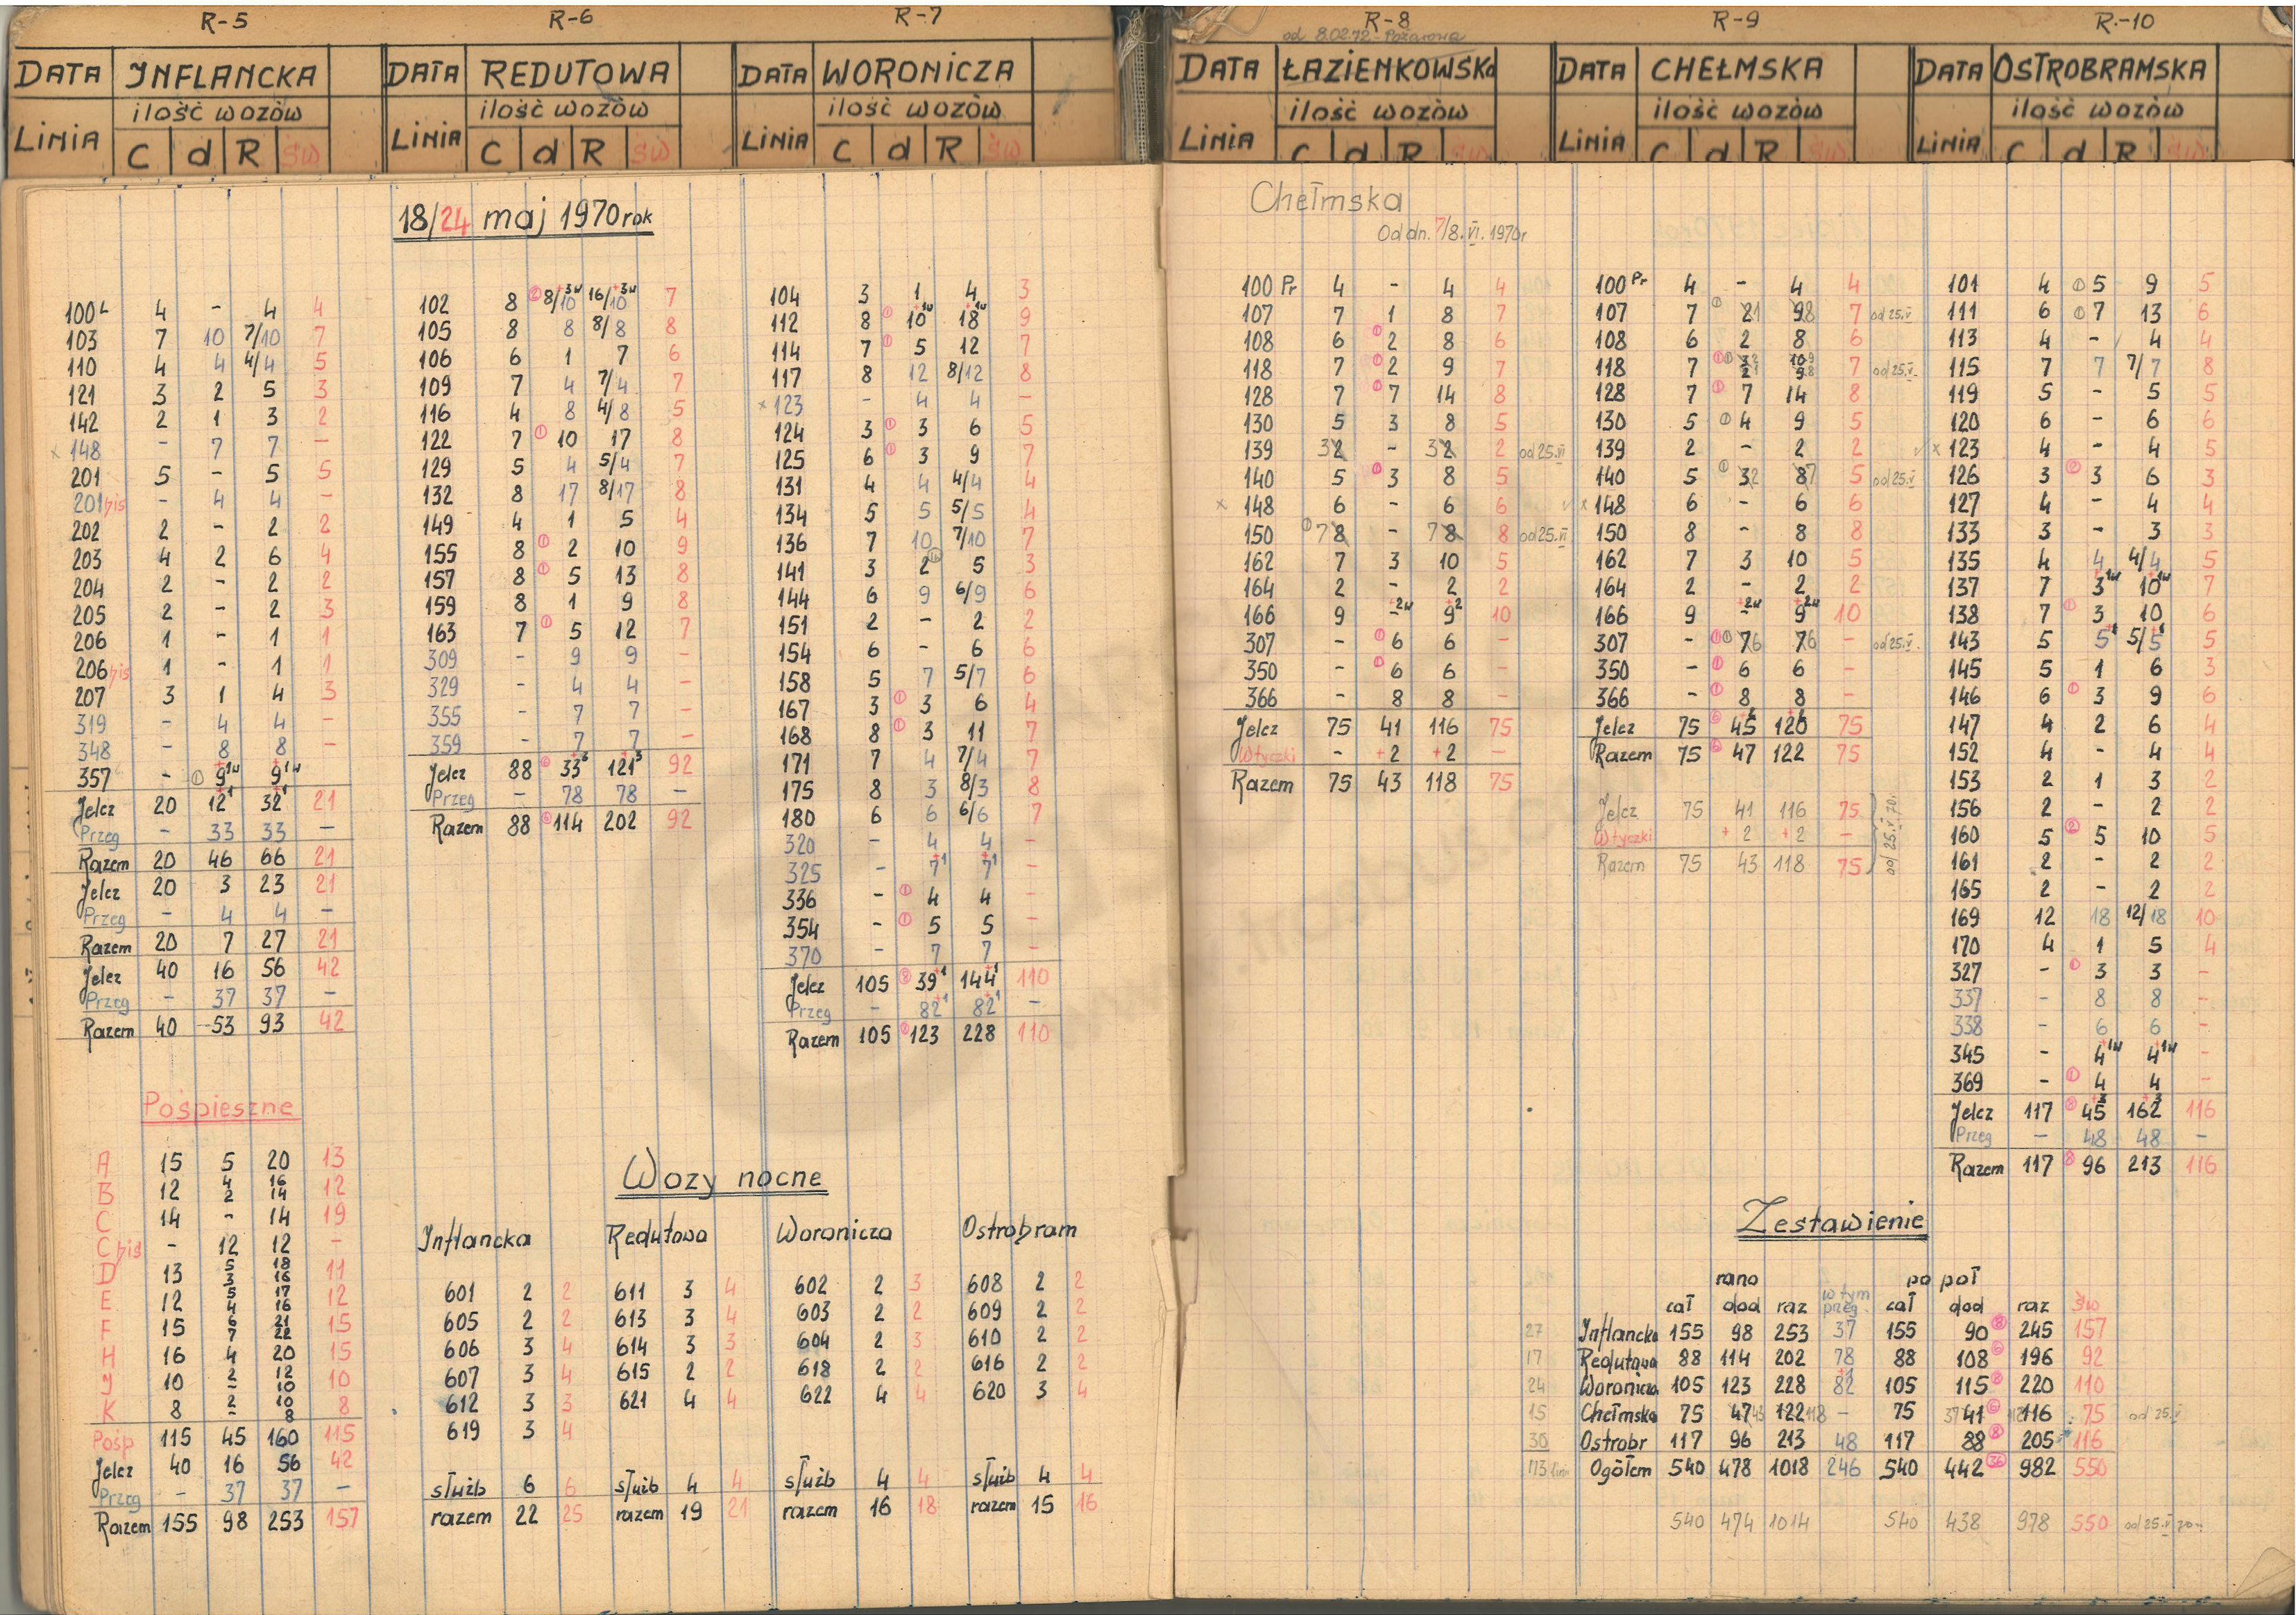 R-5 R-6 R-7 R-8 R-9 R-10
od 8.02.72 - Pożarowa
DATA INFLANCKA
ilość wozów
LINIA C d R św
DATA REDUTOWA
ilość wozów
LINIA C d R św
DATA WORONICZA
ilość wozów
LINIA C d R św
DATA ŁAZIENKOWSKA
ilość wozów
LINIA C d R św
DATA CHEŁMSKA
ilość wozów
LINIA C d R św
DATA OSTROBRAMSKA
ilość wozów
LINIA C d R św
18/24 maj 1970 rok
100 L 4 - 4 4
103 7 10 7/10 7
110 4 4 4/4 5
121 3 2 5 3
142 2 1 3 2
x 148 - 7 7 -
201 5 - 5 5
201 bis - 4 4 -
202 2 - 2 2
203 4 2 6 4
204 2 - 2 2
205 2 - 2 3
206 1 - 1 1
206 bis 1 - 1 1
207 3 1 4 3
319 - 4 4 -
348 - 8 8 -
357 - ① 9+1w 9+1w
Jelcz 20 12+1 32+1 21
Przeg - 33 33 -
Razem 20 46 66 21
Jelcz 20 3 23 21
Przeg - 4 4 -
Razem 20 7 27 21
Jelcz 40 16 56 42
Przeg - 37 37 -
Razem 40 53 93 42
Pośpieszne
A 15 5 20 13
B 12 4/2 16/14 12
C 14 - 14 19
C bis - 12 12 -
D 13 5/3 18/16 11
E 12 5/4 17/16 12
F 15 6/7 21/22 15
H 16 4 20 15
J 10 2/- 12/10 10
K 8 2/- 10/8 8
Pośp 115 45 160 115
Jelcz 40 16 56 42
Przeg - 37 37 -
Razem 155 98 253 157
102 8 ② 8/10+3w 16/10+3w 7
105 8 8 8/8 8
106 6 1 7 6
109 7 4 7/4 7
116 4 8 4/8 5
122 7 ① 10 17 8
129 5 4 5/4 7
132 8 17 8/17 8
149 4 1 5 4
155 8 ① 2 10 9
157 8 ① 5 13 8
159 8 1 9 8
163 7 ① 5 12 7
309 - 9 9 -
329 - 4 4 -
355 - 7 7 -
359 - 7 7 -
Jelcz 88 ⑥ 33+3 121+3 92
Przeg - 78 78 -
Razem 88 ⑥ 114 202 92
104 3 1 4 3
112 8 ① 10+1w 18+1w 9
114 7 ① 5 12 7
117 8 12 8/12 8
x 123 - 4 4 -
124 3 ① 3 6 5
125 6 ① 3 9 7
131 4 4 4/4 4
134 5 5 5/5 4
136 7 10 7/10 7
141 3 2 5 3
144 6 9 6/9 6
151 2 - 2 2
154 6 - 6 6
158 5 7 5/7 6
167 3 ① 3 6 4
168 8 ① 3 11 7
171 7 4 7/4 7
175 8 3 8/3 8
180 6 6 6/6 7
320 - 4 4 -
325 - 7+1 7+1 -
336 - ① 4 4 -
354 - ① 5 5 -
370 - 7 7 -
Jelcz 105 ⑧ 39+1 144+1 110
Przeg - 82+1 82+1 -
Razem 105 ⑧ 123 228 110
Wozy nocne
Inflancka Redutowa Woronicza Ostrobram
601 2 2 611 3 4 602 2 3 608 2 2
605 2 2 613 3 4 603 2 2 609 2 2
606 3 4 614 3 3 604 2 3 610 2 2
607 3 4 615 2 2 618 2 2 616 2 2
612 3 3 621 4 4 622 4 4 620 3 4
619 3 4
służb 6 6 służb 4 4 służb 4 4 służb 4 4
razem 22 25 razem 19 21 razem 16 18 razem 15 16
Chełmska
Od dn. 7/8.VI.1970r
100 Pr 4 - 4 4
107 7 1 8 7
108 6 ① 2 8 6
118 7 ① 2 9 7
128 7 ① 7 14 8
130 5 3 8 5
139 32 - 32 2 od 25.VI
140 5 ① 3 8 5
x 148 6 - 6 6
150 ① 78 - 78 8 od 25.VI
162 7 3 10 5
164 2 - 2 2
166 9 -+2w 9+2 10
307 - ① 6 6 -
350 - ① 6 6 -
366 - 8 8 -
Jelcz 75 41 116 75
Wtyczki - +2 +2 -
Razem 75 43 118 75
100 Pr 4 - 4 4
107 7 ① 21 98 7 od 25.V
108 6 2 8 6
118 7 ①① 32 21 109 98 7 od 25.V
128 7 ① 7 14 8
130 5 ① 4 9 5
139 2 - 2 2
140 5 ① 32 87 5 od 25.V
x 148 6 - 6 6
150 8 - 8 8
162 7 3 10 5
164 2 - 2 2
166 9 -+2w 9+2w 10
307 - ①① 76 76 - od 25.V
350 - ① 6 6 -
366 - ① 8 8 -
Jelcz 75 ⑥ 45 120 75
Razem 75 ⑥ 47 122 75
Jelcz 75 41 116 75
Wtyczki +2 +2 -
Razem 75 43 118 75
od 25.V.70r.
101 4 ① 5 9 5
111 6 ① 7 13 6
113 4 - 4 4
115 7 7 7/7 8
119 5 - 5 5
120 6 - 6 6
x 123 4 - 4 5
126 3 ② 3 6 3
127 4 - 4 4
133 3 - 3 3
135 4 4 4/4 5
137 7 3+1w 10+1w 7
138 7 ① 3 10 6
143 5 5+1 5/5+1 5
145 5 1 6 3
146 6 ① 3 9 6
147 4 2 6 4
152 4 - 4 4
153 2 1 3 2
156 2 - 2 2
160 5 ② 5 10 5
161 2 - 2 2
165 2 - 2 2
169 12 18 12/18 10
170 4 1 5 4
327 - ① 3 3 -
337 - 8 8 -
338 - 6 6 -
345 - 4+1w 4+1w -
369 - ① 4 4 -
Jelcz 117 ⑧ 45+3 162+3 116
Przeg - 48 48 -
Razem 117 ⑧ 96 213 116
Zestawienie
rano po poł
cał dod raz w tym przeg. cał dod raz św
27 Inflancka 155 98 253 37 155 90 ⑧ 245 157
17 Redutowa 88 114 202 78 88 108 ⑥ 196 92
24 Woronicza 105 123 228 82+1 105 115 ⑧ 220 110
15 Chełmska 75 47 43 122 118 - 75 37 41 ⑥ 112 116 75 od 25.V
30 Ostrobr 117 96 213 48 117 88 ⑧ 205 116
113 lin Ogółem 540 478 1018 246 540 442 ㊱ 982 550
540 474 1014 540 438 978 550 od 25.V 70r.